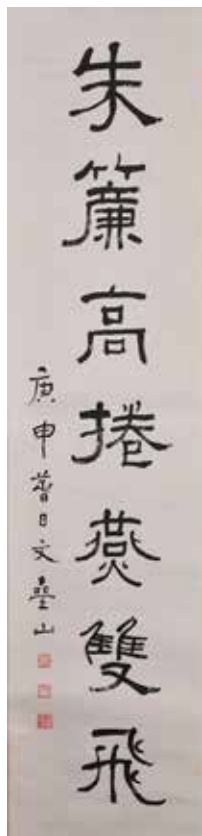 朱簾高捲燕雙飛
庚申萅日文疊山